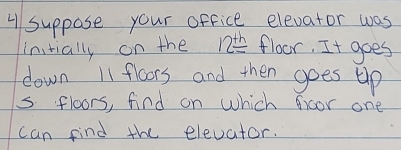 4) Suppose your office elevator was
initially on the 12th floor. It goes
down 11 floors and then goes up
5 floors, find on which floor one
can find the elevator.